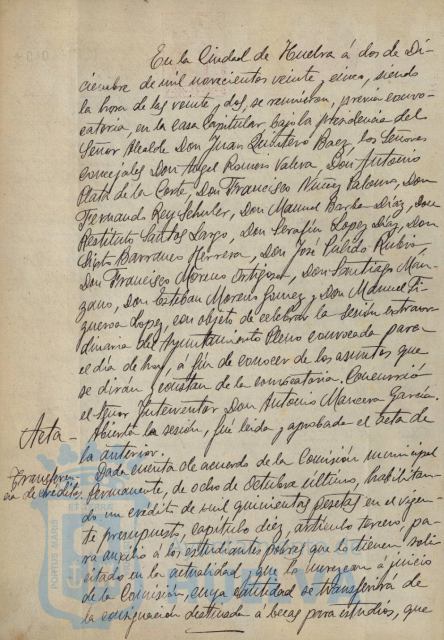 En la Ciudad de Huelva á dos de Di-
ciembre de mil novecientos veinte y cinco, siendo
la hora de las veinte y dos, se reunieron, previa convo-
catoria, en la casa Capitular bajo la presidencia del
Señor Alcalde Don Juan Quintero Baez, los Señores
concejales Don Angel Romero Don Antonio
Plata de la Corte, Don Francisco Nuñez Don
Fernando Rey Don Manuel Barba Diaz, Don
Restituto Santos Largo, Don Serafin Lopez Diaz, Don
Sixto Barranco Herrera, Don José Pulido Rubio
Don Francisco Moreno Ortigosa, Don Santiago Man-
zano, Don Esteban Morano Gomez y Don Manuel Fi-
gueroa Lopez, con objeto de celebrar la sesión extraor-
dinaria del Ayuntamiento Pleno convocada para
el dia de hoy, á fin de conocer de los asuntos que
se dirán y constan de la convocatoria. Concurrió
el Señor Interventor Don Antonio Garcia.
Acta - Abierta la sesión, fué leida y aprobada el acta de
la anterior.
Transferen-
cia de creditos.
Dada cuenta de acuerdo de la Comisión municipal
permanente, de ocho de Octubre ultimo, habilitan-
do un crédito de mil quinientas pesetas en el vigen-
te presupuesto, capitulo diez, articulo tercero, pa-
ra auxilio á los estudiantes pobres que lo tienen soli-
citado en la actualidad y que lo merezcan á juicio
de la Comisión, cuya cantidad se transferirá de
la consignación destinada a becas para estudios, que
PORTUS MARIS